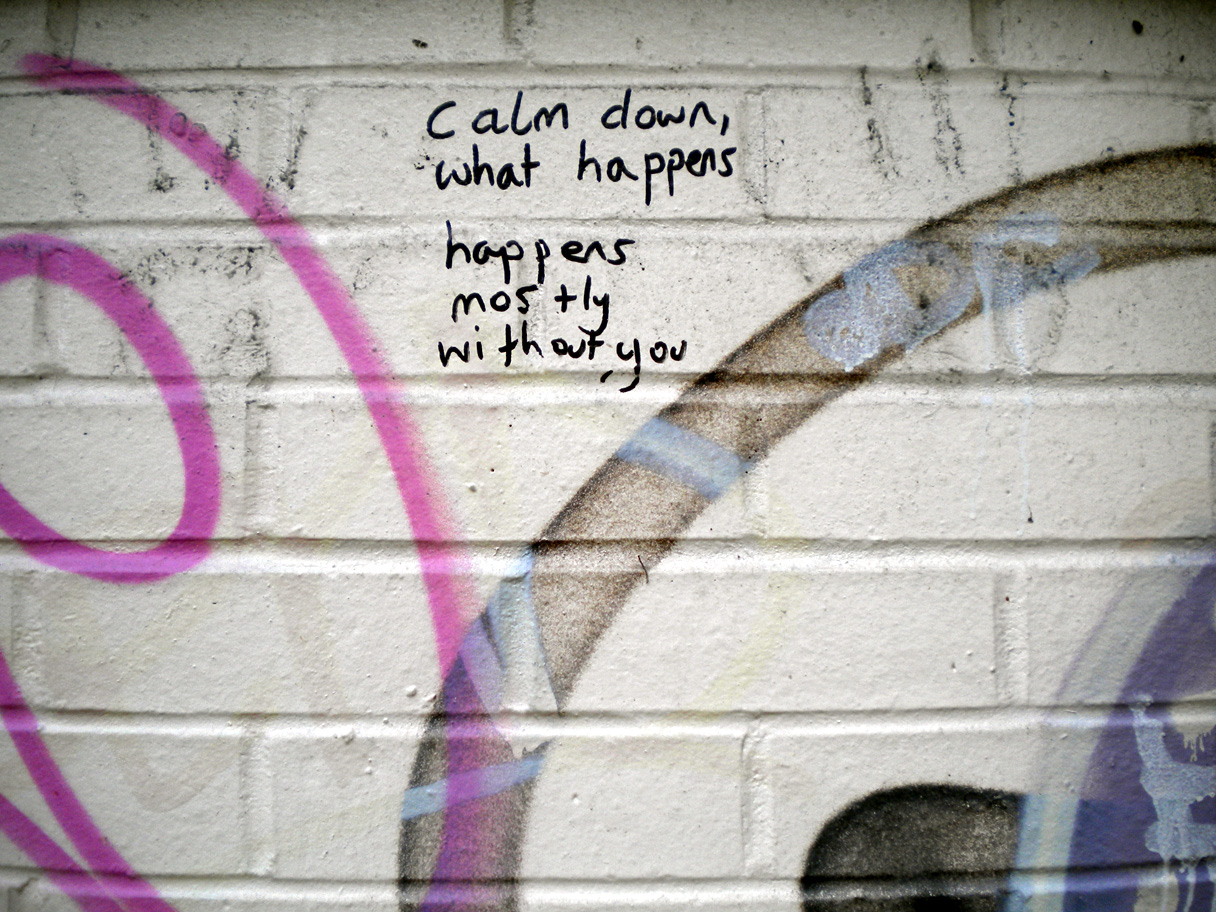 Calm down,
what happens
happens
mostly
without you